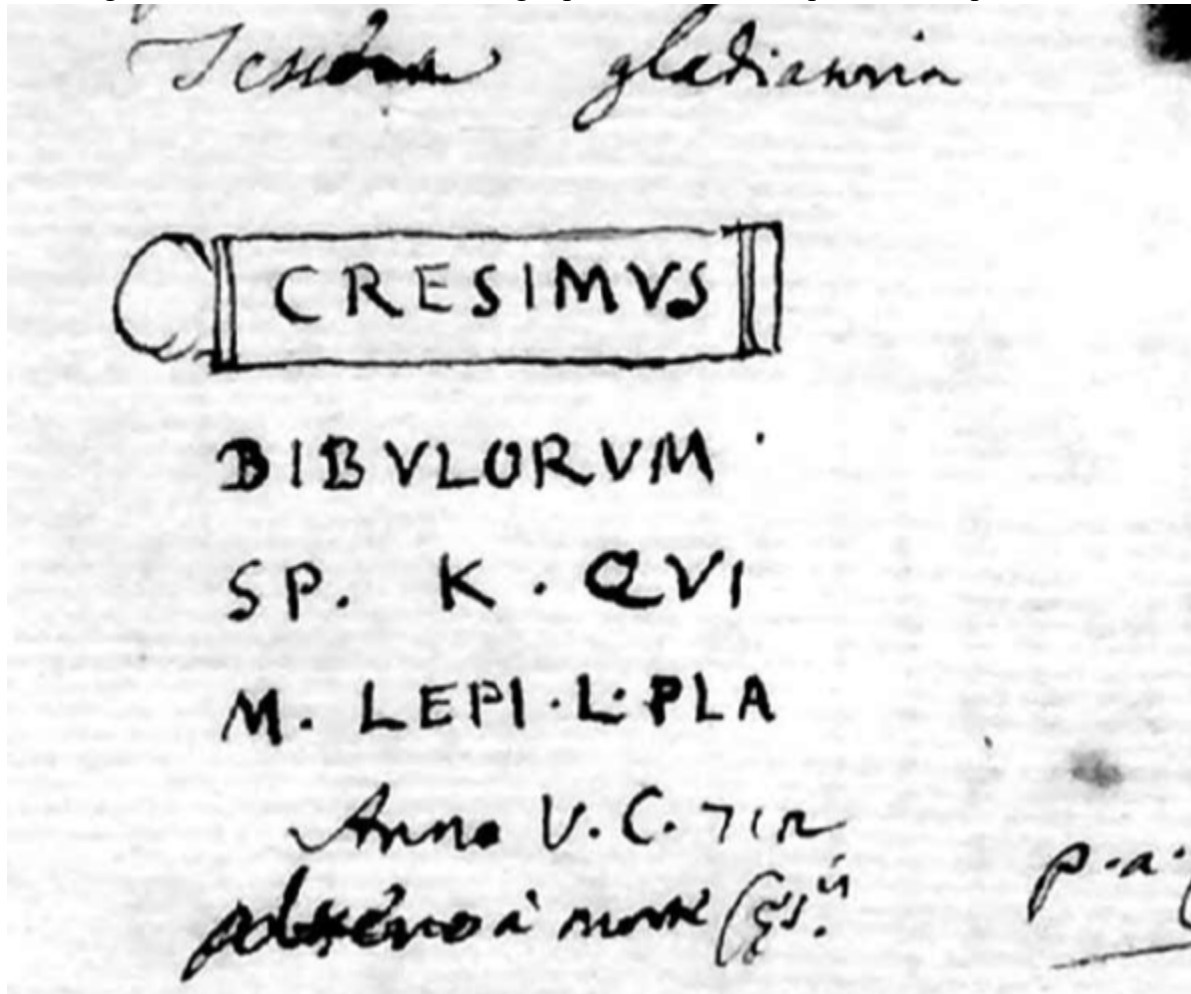 Tessera gladiatoria
CRESIMVS
BIBVLORVM
SP. K. QVI
M. LEPI. L. PLA
Anno V. C. 712
à morte
p. a.